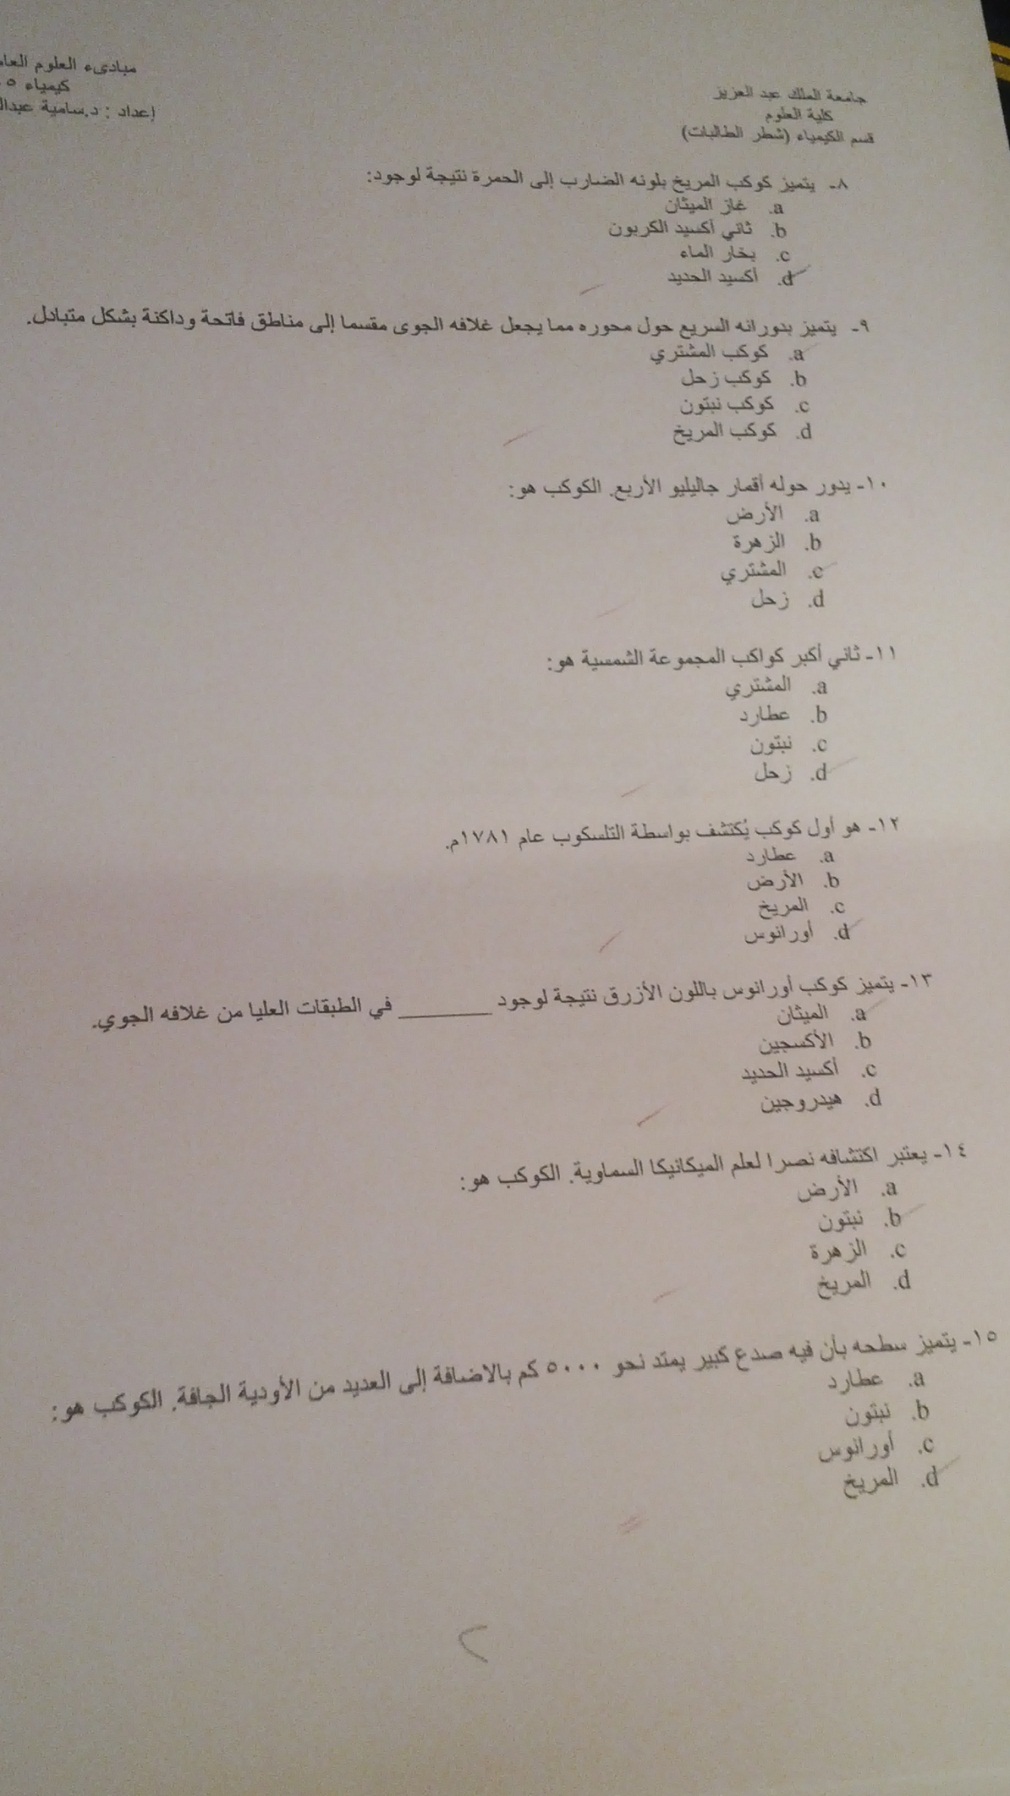 جامعة الملك عبد العزيز
كلية العلوم
قسم الكيمياء (شطر الطالبات)
مبادىء العلوم
كيمياء
إعداد : د.سامية
٨- يتميز كوكب المريخ بلونه الضارب إلى الحمرة نتيجة لوجود:
a. غاز الميثان
b. ثاني أكسيد الكربون
c. بخار الماء
d. أكسيد الحديد
٩- يتميز بدورانه السريع حول محوره مما يجعل غلافه الجوى مقسما إلى مناطق فاتحة وداكنة بشكل متبادل.
a. كوكب المشتري
b. كوكب زحل
c. كوكب نبتون
d. كوكب المريخ
١٠- يدور حوله أقمار جاليليو الأربع. الكوكب هو:
a. الأرض
b. الزهرة
c. المشتري
d. زحل
١١- ثاني أكبر كواكب المجموعة الشمسية هو:
a. المشتري
b. عطارد
c. نبتون
d. زحل
١٢- هو أول كوكب يُكتشف بواسطة التلسكوب عام ١٧٨١م.
a. عطارد
b. الأرض
c. المريخ
d. أورانوس
١٣- يتميز كوكب أورانوس باللون الأزرق نتيجة لوجود ________ في الطبقات العليا من غلافه الجوي.
a. الميثان
b. الأكسجين
c. أكسيد الحديد
d. هيدروجين
١٤- يعتبر اكتشافه نصرا لعلم الميكانيكا السماوية. الكوكب هو:
a. الأرض
b. نبتون
c. الزهرة
d. المريخ
١٥- يتميز سطحه بأن فيه صدع كبير يمتد نحو ٥٠٠٠ كم بالاضافة إلى العديد من الأودية الجافة. الكوكب هو:
a. عطارد
b. نبتون
c. أورانوس
d. المريخ
٢